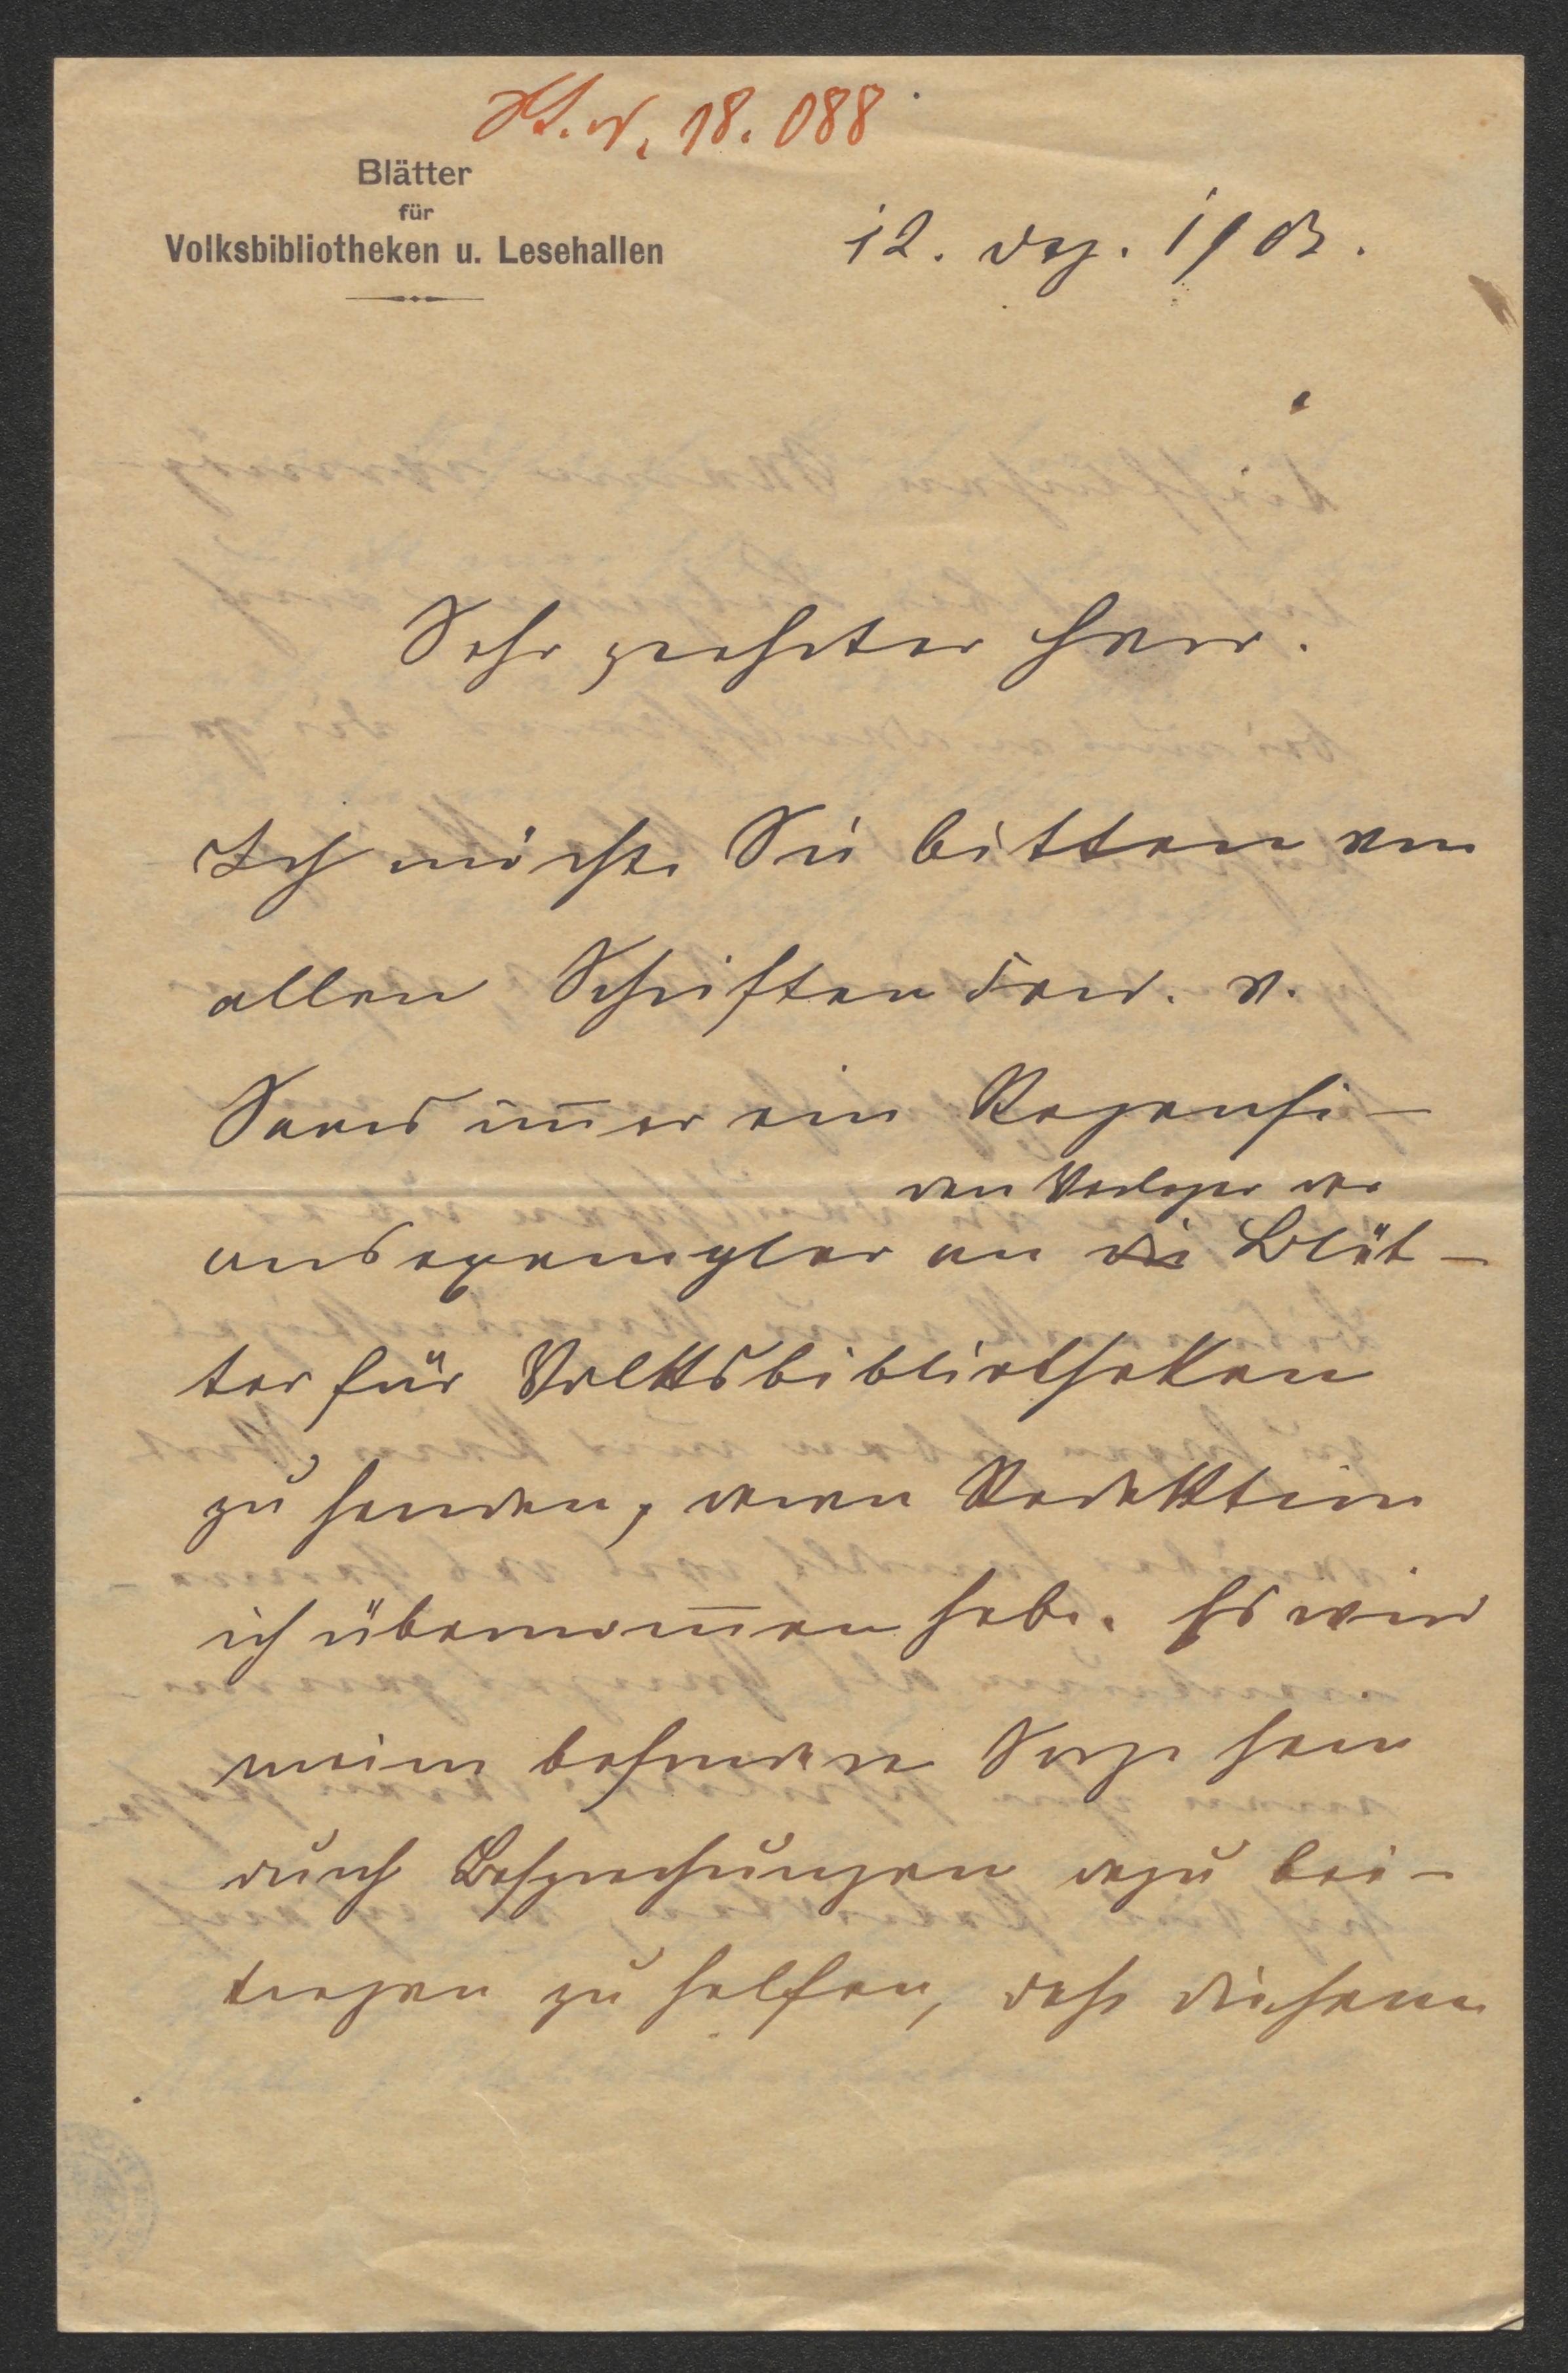 18.088
Blätter
für
Volksbibliotheken u. Lesehallen
12. Dez. 1903.
Sehr geehrter Herr.
Ich möchte Sie bitten von
allen Schriften Ferd. v.
Saars im̄er ein Rezensi-
den Verleger der
onsexemplar an die Blät-
ter für Volksbibliotheken
zu senden, deren Redaktion
ich übernom̄en habe. Es wird
meine besondere Sorge sein
durch Besprechungen dazu bei-
tragen zu helfen, dass diesem